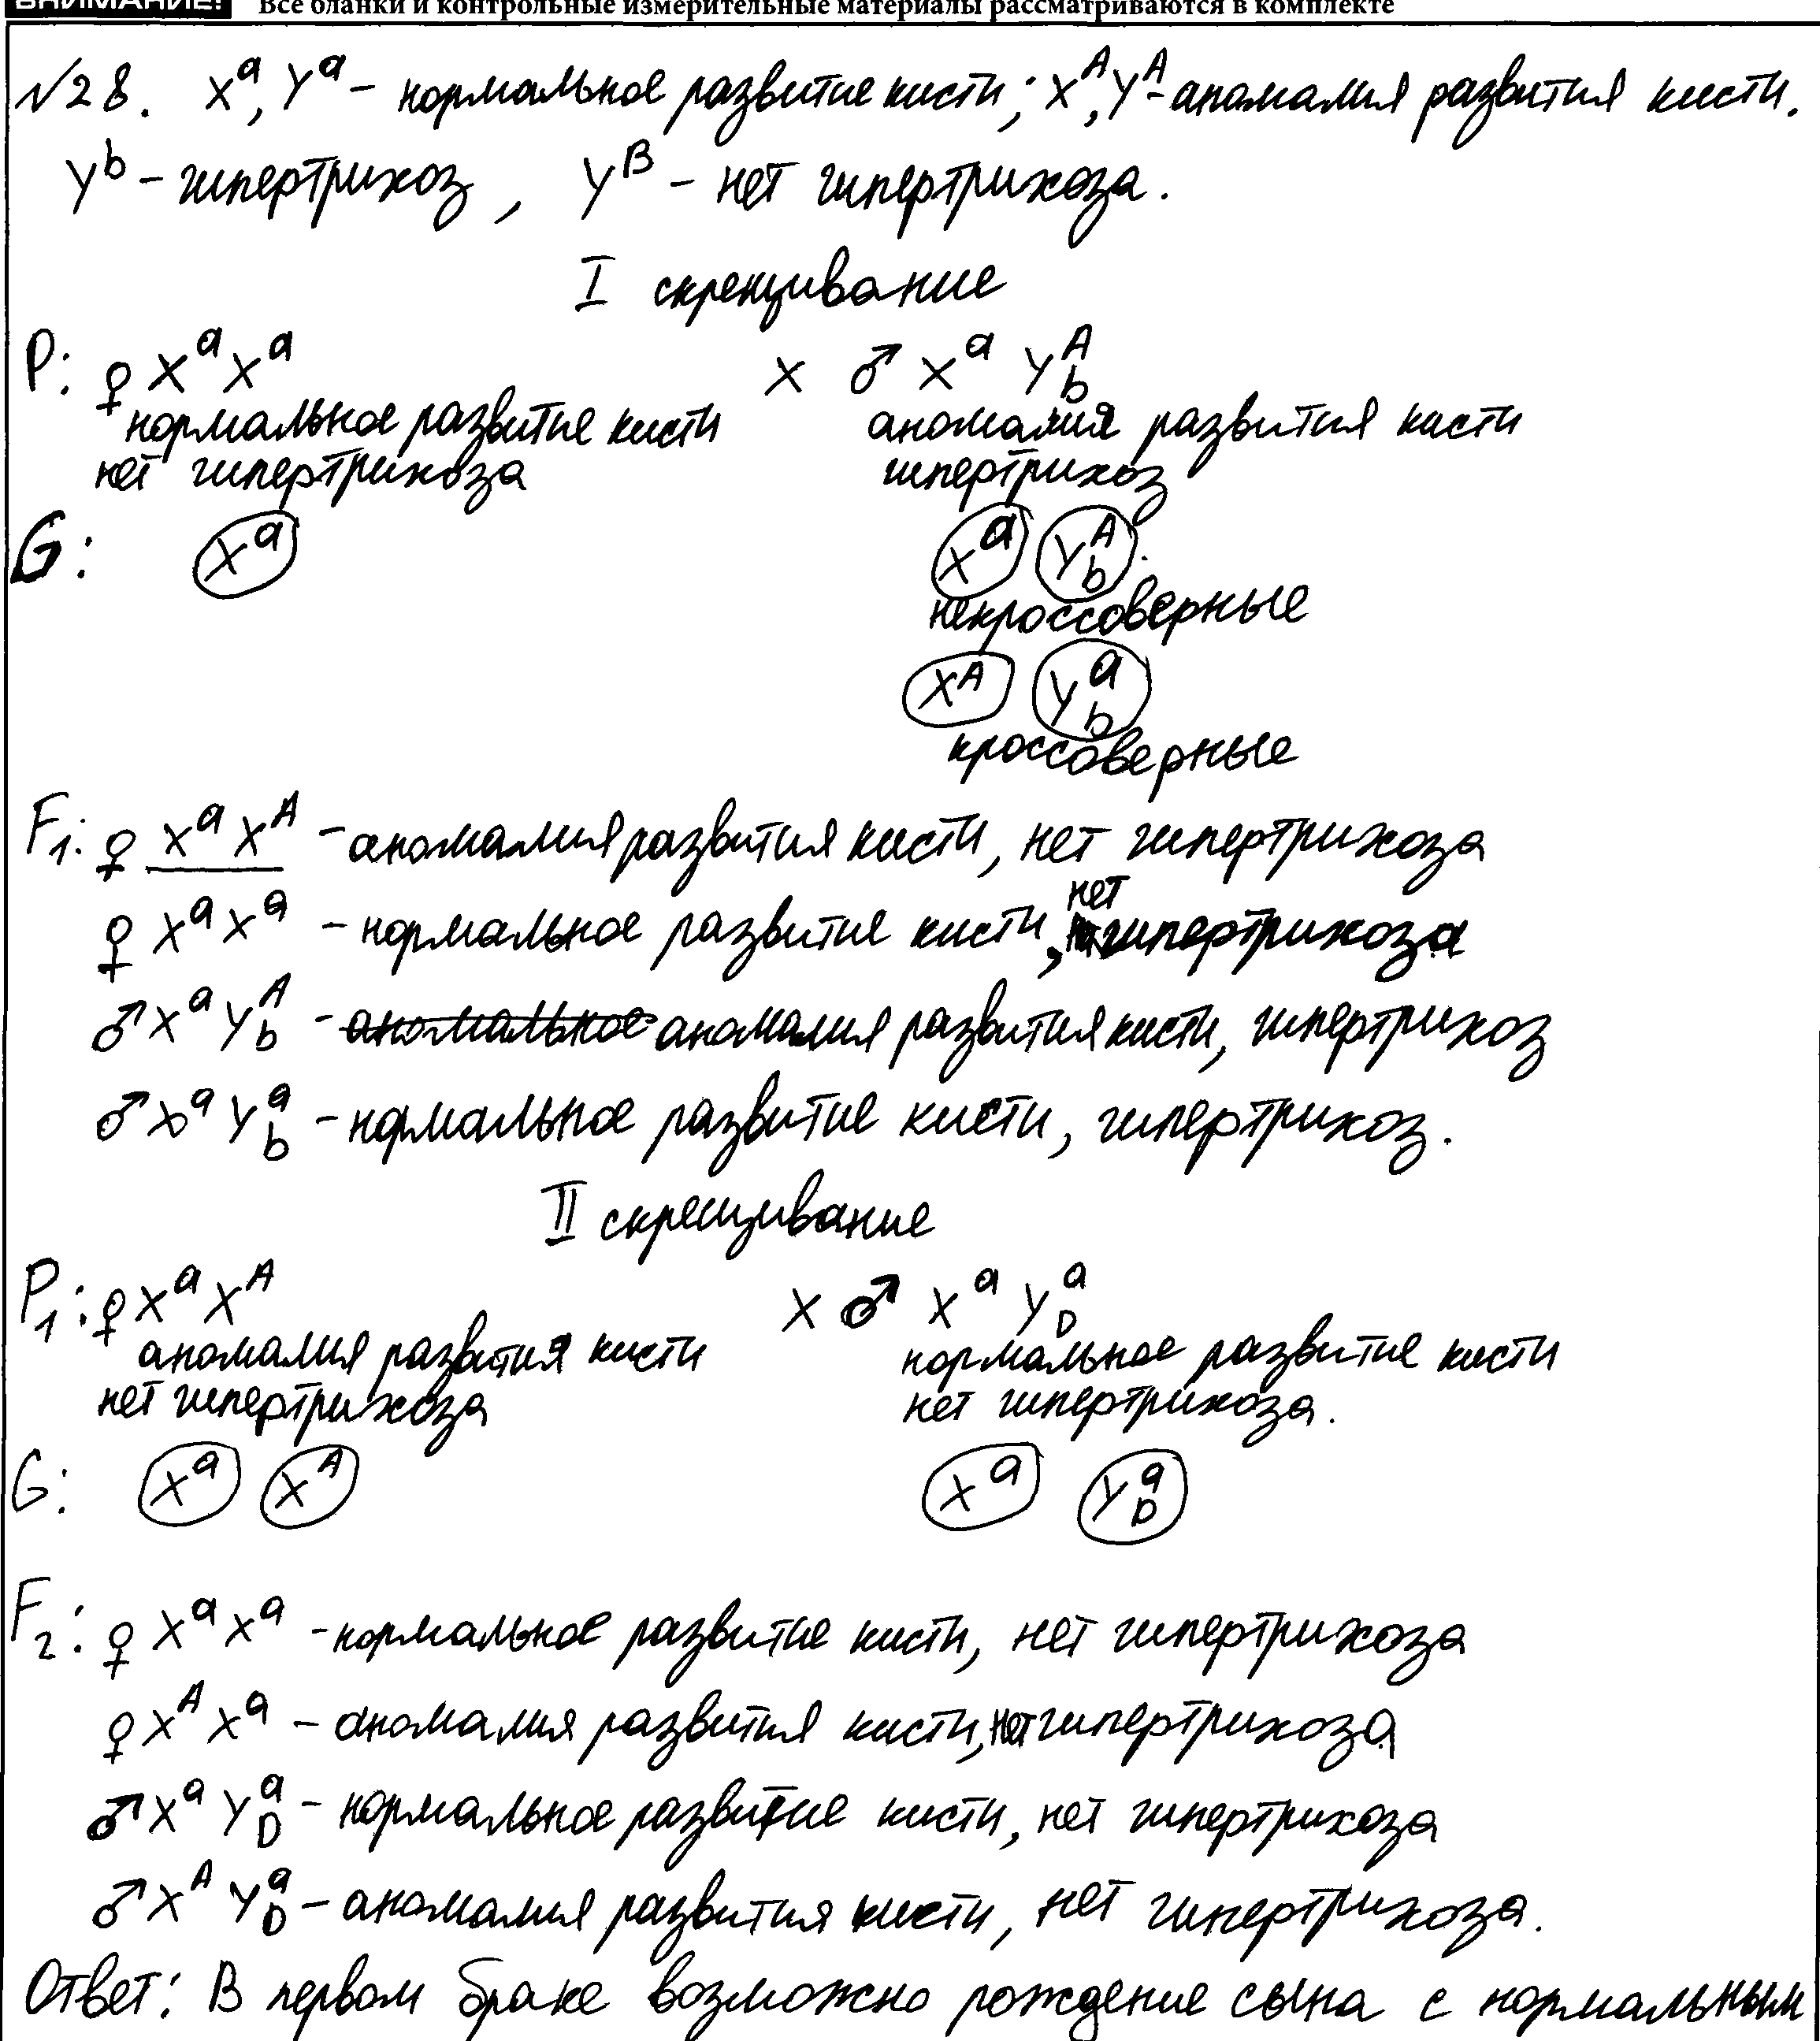 ВНИМАНИЕ! Все бланки и контрольные измерительные материалы рассматриваются в комплекте
№28. Xᵃ, Yᵃ – нормальное развитие кисти; Xᴬ, Yᴬ – аномалия развития кисти.
Yᵇ – гипертрихоз, Yᴮ – нет гипертрихоза.
I скрещивание
P: ♀ XᵃXᵃ x ♂ Xᵃ Yᴬb
нормальное развитие кисти аномалия развития кисти
нет гипертрихоза гипертрихоз
G: Xᵃ Xᵃ Yᴬb
некроссоверные
Xᴬ Yᵃb
кроссоверные
F₁: ♀ XᵃXᴬ – аномалия развития кисти, нет гипертрихоза
♀ XᵃXᵃ – нормальное развитие кисти, нет гипертрихоза
♂ XᵃYᴬb – аномальное аномалия развития кисти, гипертрихоз
♂ XᵃYᵃb – нормальное развитие кисти, гипертрихоз.
II скрещивание
P₁: ♀ XᵃXᴬ x ♂ Xᵃ YᵃD
аномалия развития кисти нормальное развитие кисти
нет гипертрихоза нет гипертрихоза.
G: Xᵃ Xᴬ Xᵃ YᵃD
F₂: ♀ XᵃXᵃ – нормальное развитие кисти, нет гипертрихоза
♀ XᴬXᵃ – аномалия развития кисти, нет гипертрихоза
♂ XᵃYᵃD – нормальное развитие кисти, нет гипертрихоза
♂ XᴬYᵃD – аномалия развития кисти, нет гипертрихоза.
Ответ: В первом браке возможно рождение сына с нормальным